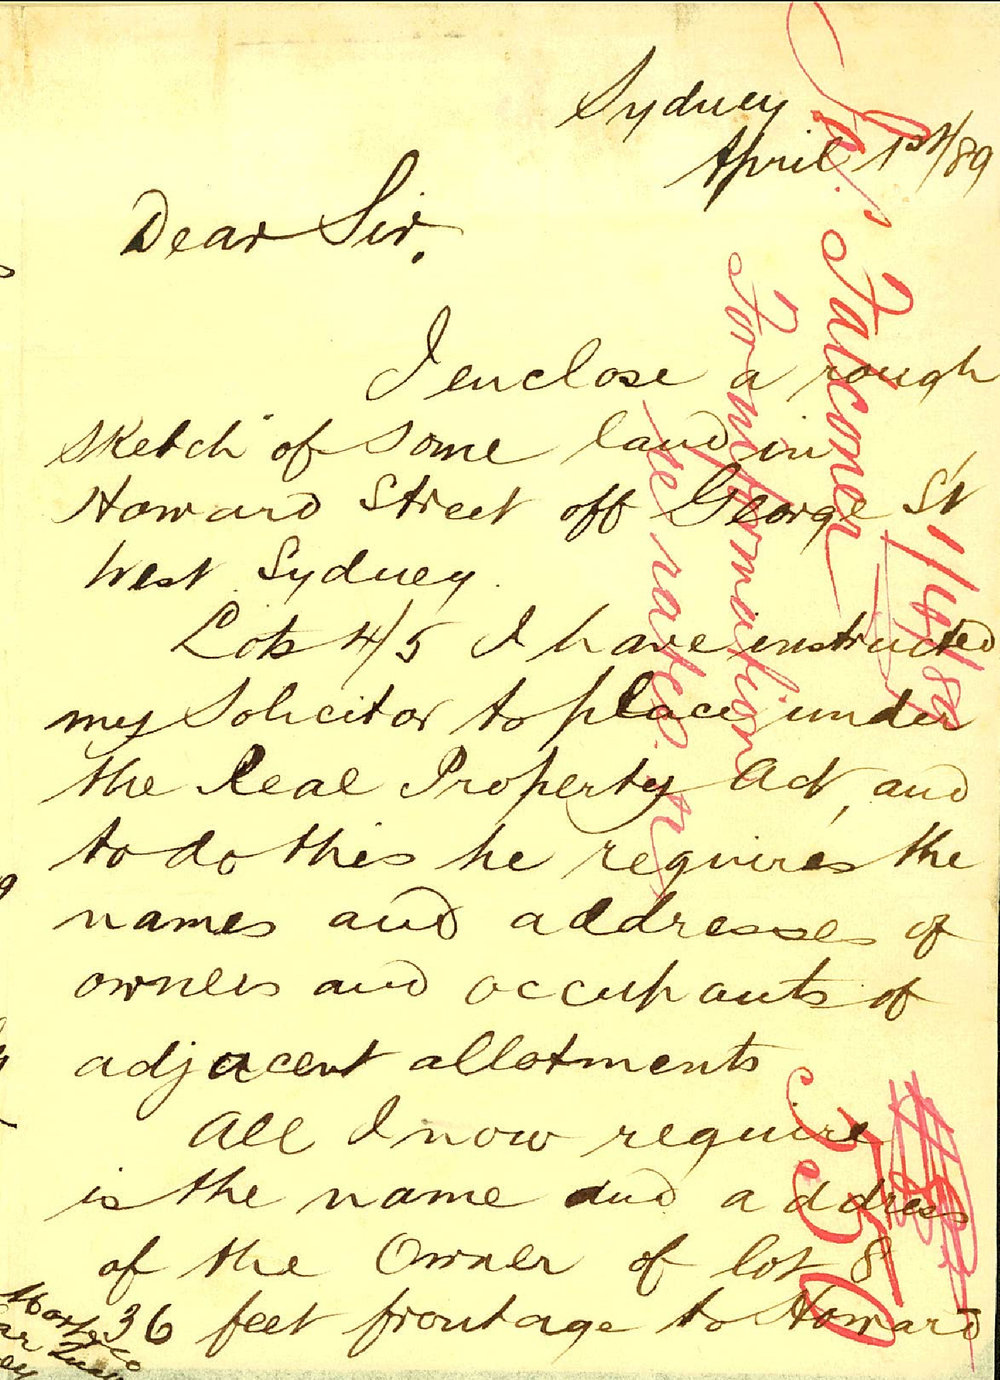 Sydney
April 1st/89
Dear Sir.
I enclose a rough
sketch of some land in
Howard Street off George St
West Sydney.
Lots 4/5 I have instructed
my Solicitor to place under
the Real Property Act, and
to do this he requires the
names and addresses of
owners and occupants of
adjacent allotments
All I now require
is the name and address
of the Owner of lot 8
36 feet frontage to Howard
Falconer
For information
re rates.
1/4/89
350